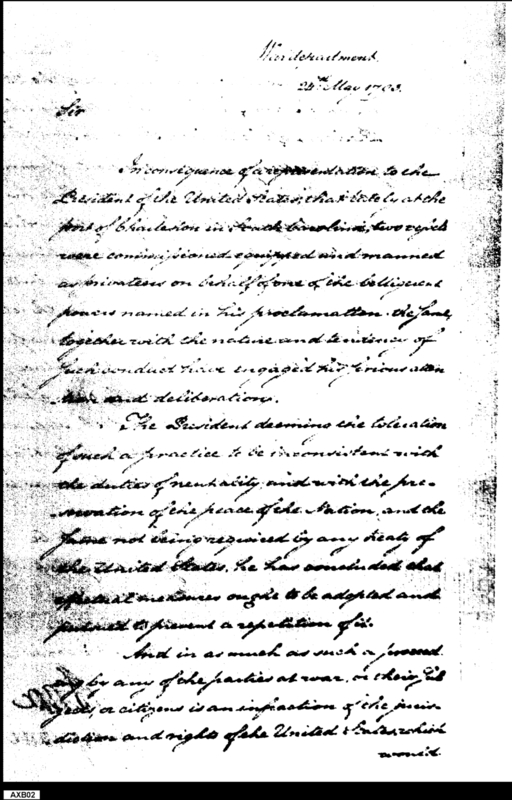 War department
24th May 1793.
Sir
In consequence of a representation to the
President of the United States, that lately at the
port of Charleston in South Carolina, two vessels
were commissioned equipped and manned
as privateers on behalf of one of the belligerent
powers named in his proclamation. the same,
together with the nature and tendency of
such conduct have engaged his serious atten
tion and deliberations.
The President deeming the toleration
of such a practice to be inconsistent with
the duties of neutrality, and with the pre-
servation of the peace of the Nation, and the
same not being required by any treaty of
the United States, he has concluded that
effectual measures ought to be adopted and
pursued to prevent a repetition of it.
And in as much as such a proceed
ing by any of the parties at war, or their sub
jects, or citizens is an infraction of the juris-
diction and rights of the United States, which
would
AXB02